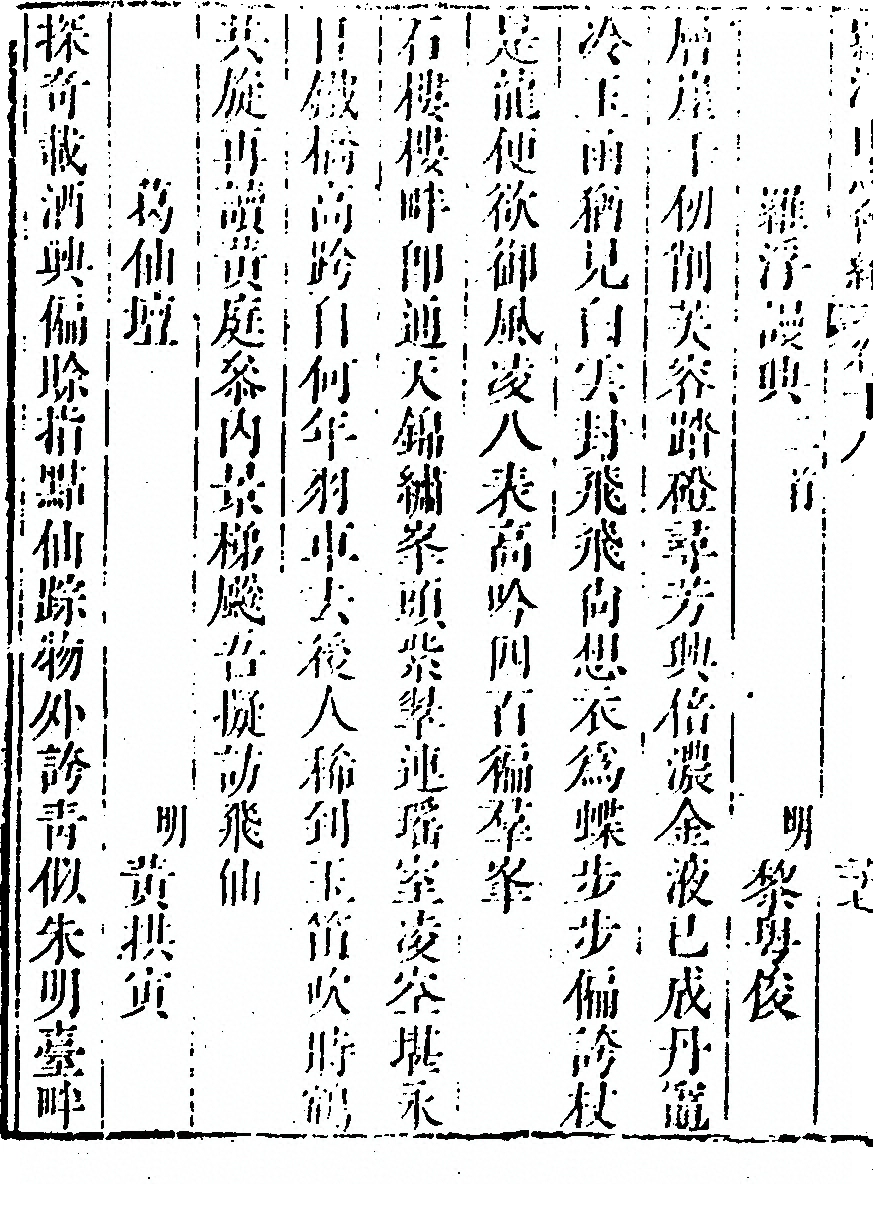 羅浮山志會編 卷十八
羅浮謾興二首 明 黎毋俊
層崖千仞削芙容踏磴尋芳興倍濃金液已成丹竈
冷玉函猶見白雲封飛飛尚想衣爲蝶步步偏誇杖
是龍便欲御風凌八表高吟四百徧羣峯
石樓樓畔卽通天錦繡峯頭紫翠連瑤室凌空堪永
日鐵橋高跨自何年羽車去後人稀到玉笛吹時鶴
共旋再讀黃庭參內景梯飈吾擬訪飛仙
葛仙壇 明 黃拱寅
探奇載酒興偏賒指點仙踪物外誇靑似朱明臺畔